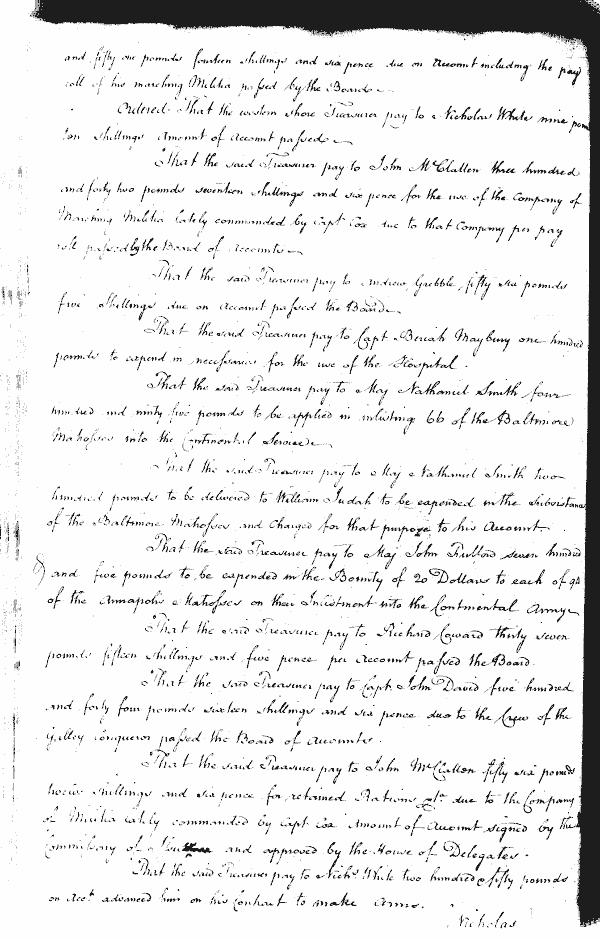 and fifty one pounds fourteen shillings and six pence due on Account including the pay
roll of his marching Militia passed by the Board
Ordered That the western shore Treasurer pay to Nicholas White nine poun
ten shillings Amount of Account passed
That the said Treasurer pay to John McClallen three hundred
and forty two pounds seventeen shillings and six pence for the use of the Company of
Marching Militia lately commanded by Capt Cox due to that Company per pay
roll passed by the Board of Accounts
That the said Treasurer pay to Andrew Grebble fifty six pounds
five Shillings due on Account passed the Board
That the said Treasurer pay to Capt Beriah Maybury one hundred
pounds to expend in necessaries for the use of the Hospital.
That the said Treasurer pay to Maj Nathaniel Smith four
hundred and ninty five pounds to be applied in inlisting 66 of the Baltimore
Matrosses into the Continental Service
That the said Treasurer pay to Maj Nathaniel Smith two
hundred pounds to be delivered to William Judah to be expended in the Subsistance
of the Baltimore Matrosses and Charged for that purpose to his Account.
That the said Treasurer pay to Maj John Fulford seven hundred
and five pounds to be expended in the Bounty of 20 Dollars to each of 94
of the Annapolis Matrosses on their Inlistment into the Continental Army
That the said Treasurer pay to Richard Coward thirty seven
pounds fifteen shillings and five pence per Account passed the Board.
That the said Treasurer pay to Capt. John David five hundred
and forty four pounds sixteen shillings and six pence due to the Crew of the
Galley Conqueror passed the Board of Accounts.
That the said Treasurer pay to John McClallen fifty six pounds
twelve shillings and six pence for retained Rations &ca. due to the Company
of Militia lately commanded by Capt Cox Amount of Account signed by the
Commissary of and approved by the House of Delegates.
That the said Treasurer pay to Nichs. White two hundred & fifty pounds
on Acct. advanced him on his Contract to make Arms.
Nicholas